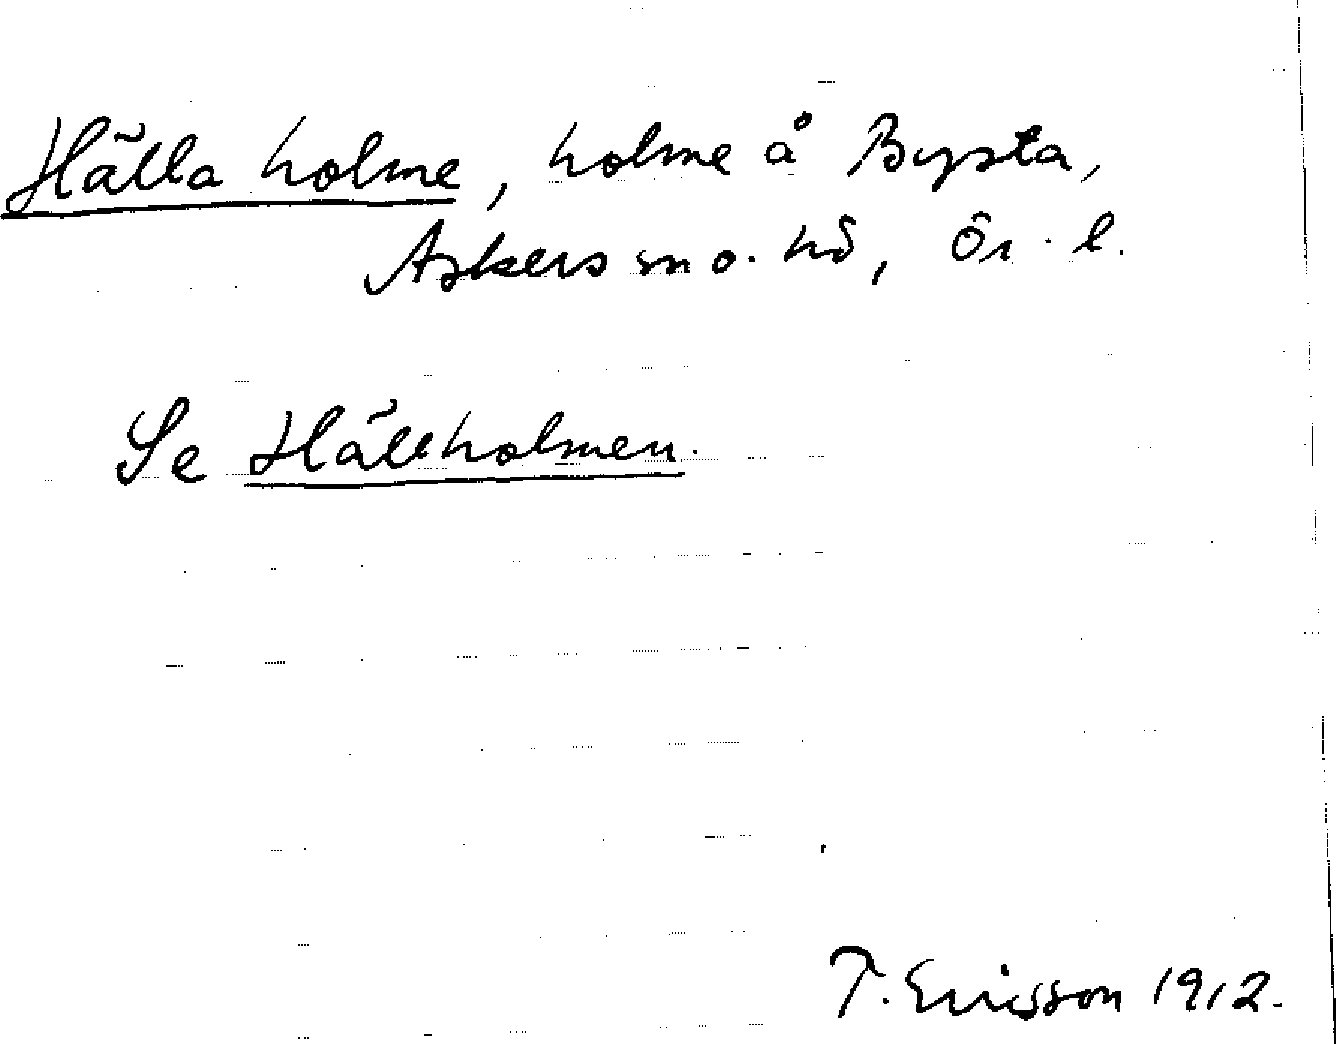 Hälla holme, holme å Bysta,
Askers sn o. hd, Ör. l.
Se Hällholmen.
T. Ericsson 1912.